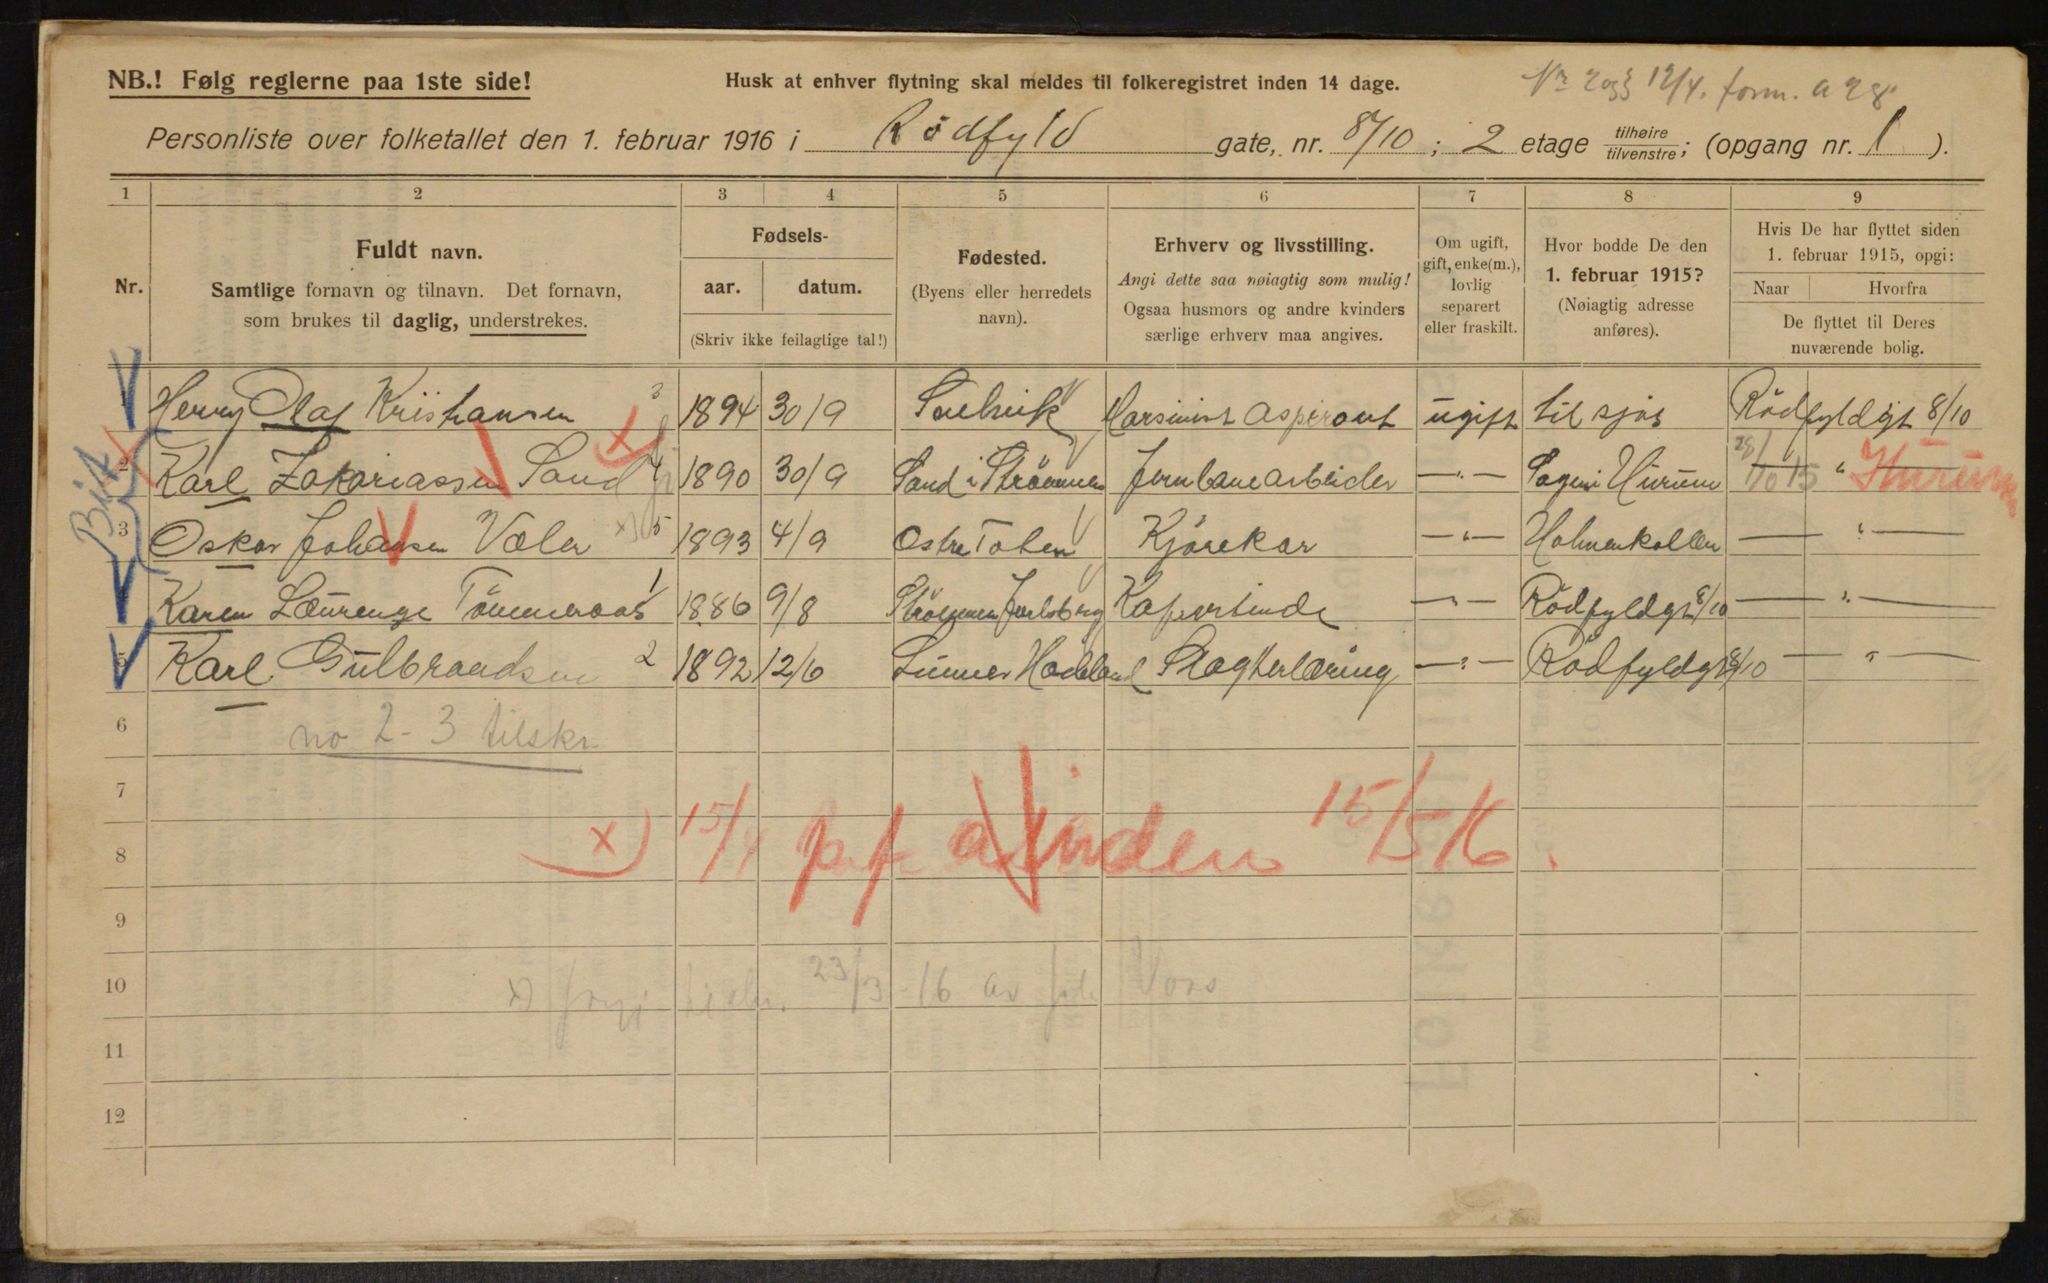 NB.! Følg reglerne paa 1ste side!
Husk at enhver flytning skal meldes til folkeregistret inden 14 dage.
12/4. form. a 28.
Personliste over folketallet den 1. februar 1916 i Rødfyld gate, nr. 8/10; 2 etage tilhøire/tilvenstre; (opgang nr. 1).
1 2 3 4 5 6 7 8 9
Nr.
Fuldt navn.
Samtlige fornavn og tilnavn. Det fornavn,
som brukes til daglig, understrekes.
Fødsels-
aar. datum.
(Skriv ikke feilagtige tal!)
Fødested.
(Byens eller herredets
navn).
Erhverv og livsstilling.
Angi dette saa nøiagtig som mulig!
Ogsaa husmors og andre kvinders
særlige erhverv maa angives.
Om ugift,
gift, enke(m.),
lovlig
separert
eller fraskilt.
Hvor bodde De den
1. februar 1915?
(Nøiagtig adresse
anføres).
Hvis De har flyttet siden
1. februar 1915, opgi:
Naar Hvorfra
De flyttet til Deres
nuværende bolig.
1 Henry Olaf Kristiansen 3 1894 30/9 Selvik Marsinist Aspirant ugift til sjøs Rødfyldgt 8/10
2 Karl Zakariassen Sand 4 1890 30/9 Sand i Strømmen Jernbanearbeider —"— Sagen i Hurum 28/10 15 " Hurum
3 Oskar Johansen Valer x) 5 1893 4/9 Østre Toten Kjørekar —"— Holmenkollen — " —
Karen Laurenze Tømmeraas 1 1886 9/8 Strømmen Jarlsberg —"— Rødfyldgt 8/10 — " —
5 Karl Gulbrandsen 2 1892 12/6 Lunner Hadeland Slagterlæring —"— Rødfyldgt 8/10 — " —
6 no 2-3 tilskr.
7
x) 15/4 p.f. a inden 15/5 16.
8
9
10 x) 23/3-16 av
11
12